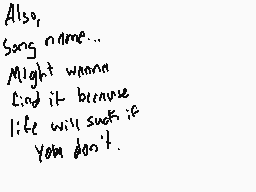 Also,
Song name...
Might wanna
find it because
life will suck if
you don't.